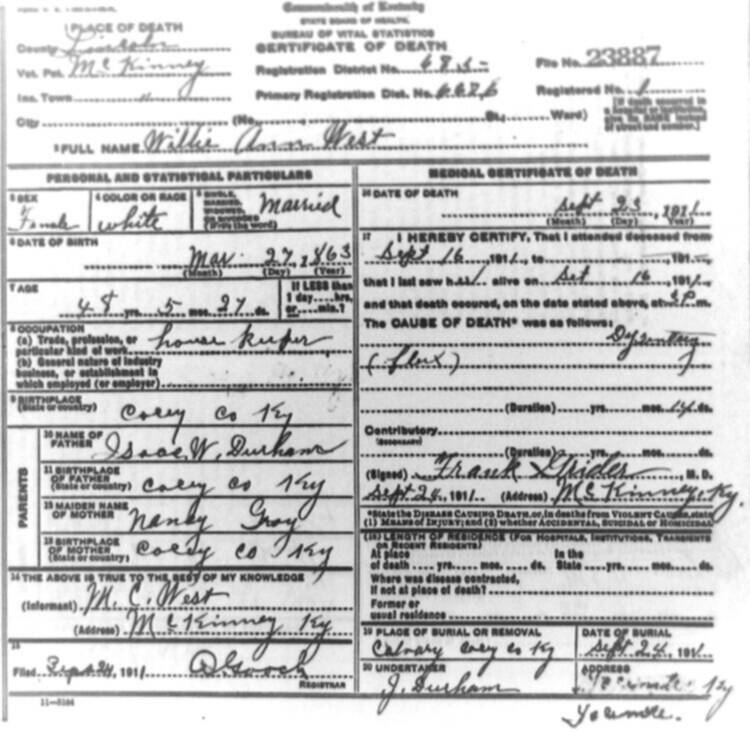 Commonwealth of Kentucky
STATE BOARD OF HEALTH.
BUREAU OF VITAL STATISTICS
CERTIFICATE OF DEATH
1 PLACE OF DEATH
County Lincoln
Vot. Pct. McKinney
Inc. Town "
City (No. St.; Ward)
Registration District No. 685
Primary Registration Dist. No. 6626
File No. 23887
Registered No. 1
[If death occurred in
a hospital or institution,
give its NAME instead
of street and number.]
2 FULL NAME Willie Ann West
PERSONAL AND STATISTICAL PARTICULARS
3 SEX
Female
4 COLOR OR RACE
white
5 SINGLE,
MARRIED,
WIDOWED,
OR DIVORCED
(Write the word)
Married
6 DATE OF BIRTH
Mar 27, 1863
(Month) (Day) (Year)
7 AGE
48 yrs. 5 mos. 27 ds.
If LESS than
1 day....hrs.
or....min.?
8 OCCUPATION
(a) Trade, profession, or
particular kind of work house keeper
(b) General nature of industry
business, or establishment in
which employed (or employer)
9 BIRTHPLACE
(State or country) Cacey co Ky
PARENTS
10 NAME OF
FATHER Isaac W. Durham
11 BIRTHPLACE
OF FATHER
(State or country) Cacey co Ky
12 MAIDEN NAME
OF MOTHER Nancy Gray
13 BIRTHPLACE
OF MOTHER
(State or country) Cacey co Ky
14 THE ABOVE IS TRUE TO THE BEST OF MY KNOWLEDGE
(Informant) M. C. West
(Address) McKinney Ky
15
Filed Sept 24, 1911 Gooch
REGISTRAR
11-3184
MEDICAL CERTIFICATE OF DEATH
16 DATE OF DEATH
Sept 23, 1911
(Month) (Day) (Year)
17 I HEREBY CERTIFY, That I attended deceased from
Sept 16, 1911, to , 191
that I last saw her alive on Set 16, 1911,
and that death occured, on the date stated above, at m.
The CAUSE OF DEATH* was as follows:
Dysentery
(flux)
(Duration) yrs. mos. 14 ds.
Contributory
(SECONDARY)
(Duration) yrs. mos. ds.
(Signed) Frank Grider, M. D.
Sept 24, 1911 (Address) McKinney, Ky.
*State the DISEASE CAUSING DEATH, or, in deaths from VIOLENT CAUSES, state
(1) MEANS OF INJURY; and (2) whether ACCIDENTAL, SUICIDAL OR HOMICIDAL
(18) LENGTH OF RESIDENCE (FOR HOSPITALS, INSTITUTIONS, TRANSIENTS
OR RECENT RESIDENTS)
At place In the
of death yrs. mos. ds. State yrs. mos. ds.
Where was disease contracted,
if not at place of death?
Former or
usual residence
19 PLACE OF BURIAL OR REMOVAL
Calvary Cacey co Ky
DATE OF BURIAL
Sept. 24, 1911
20 UNDERTAKER
J. Durham
ADDRESS
Yosemite Ky
Yosemite.